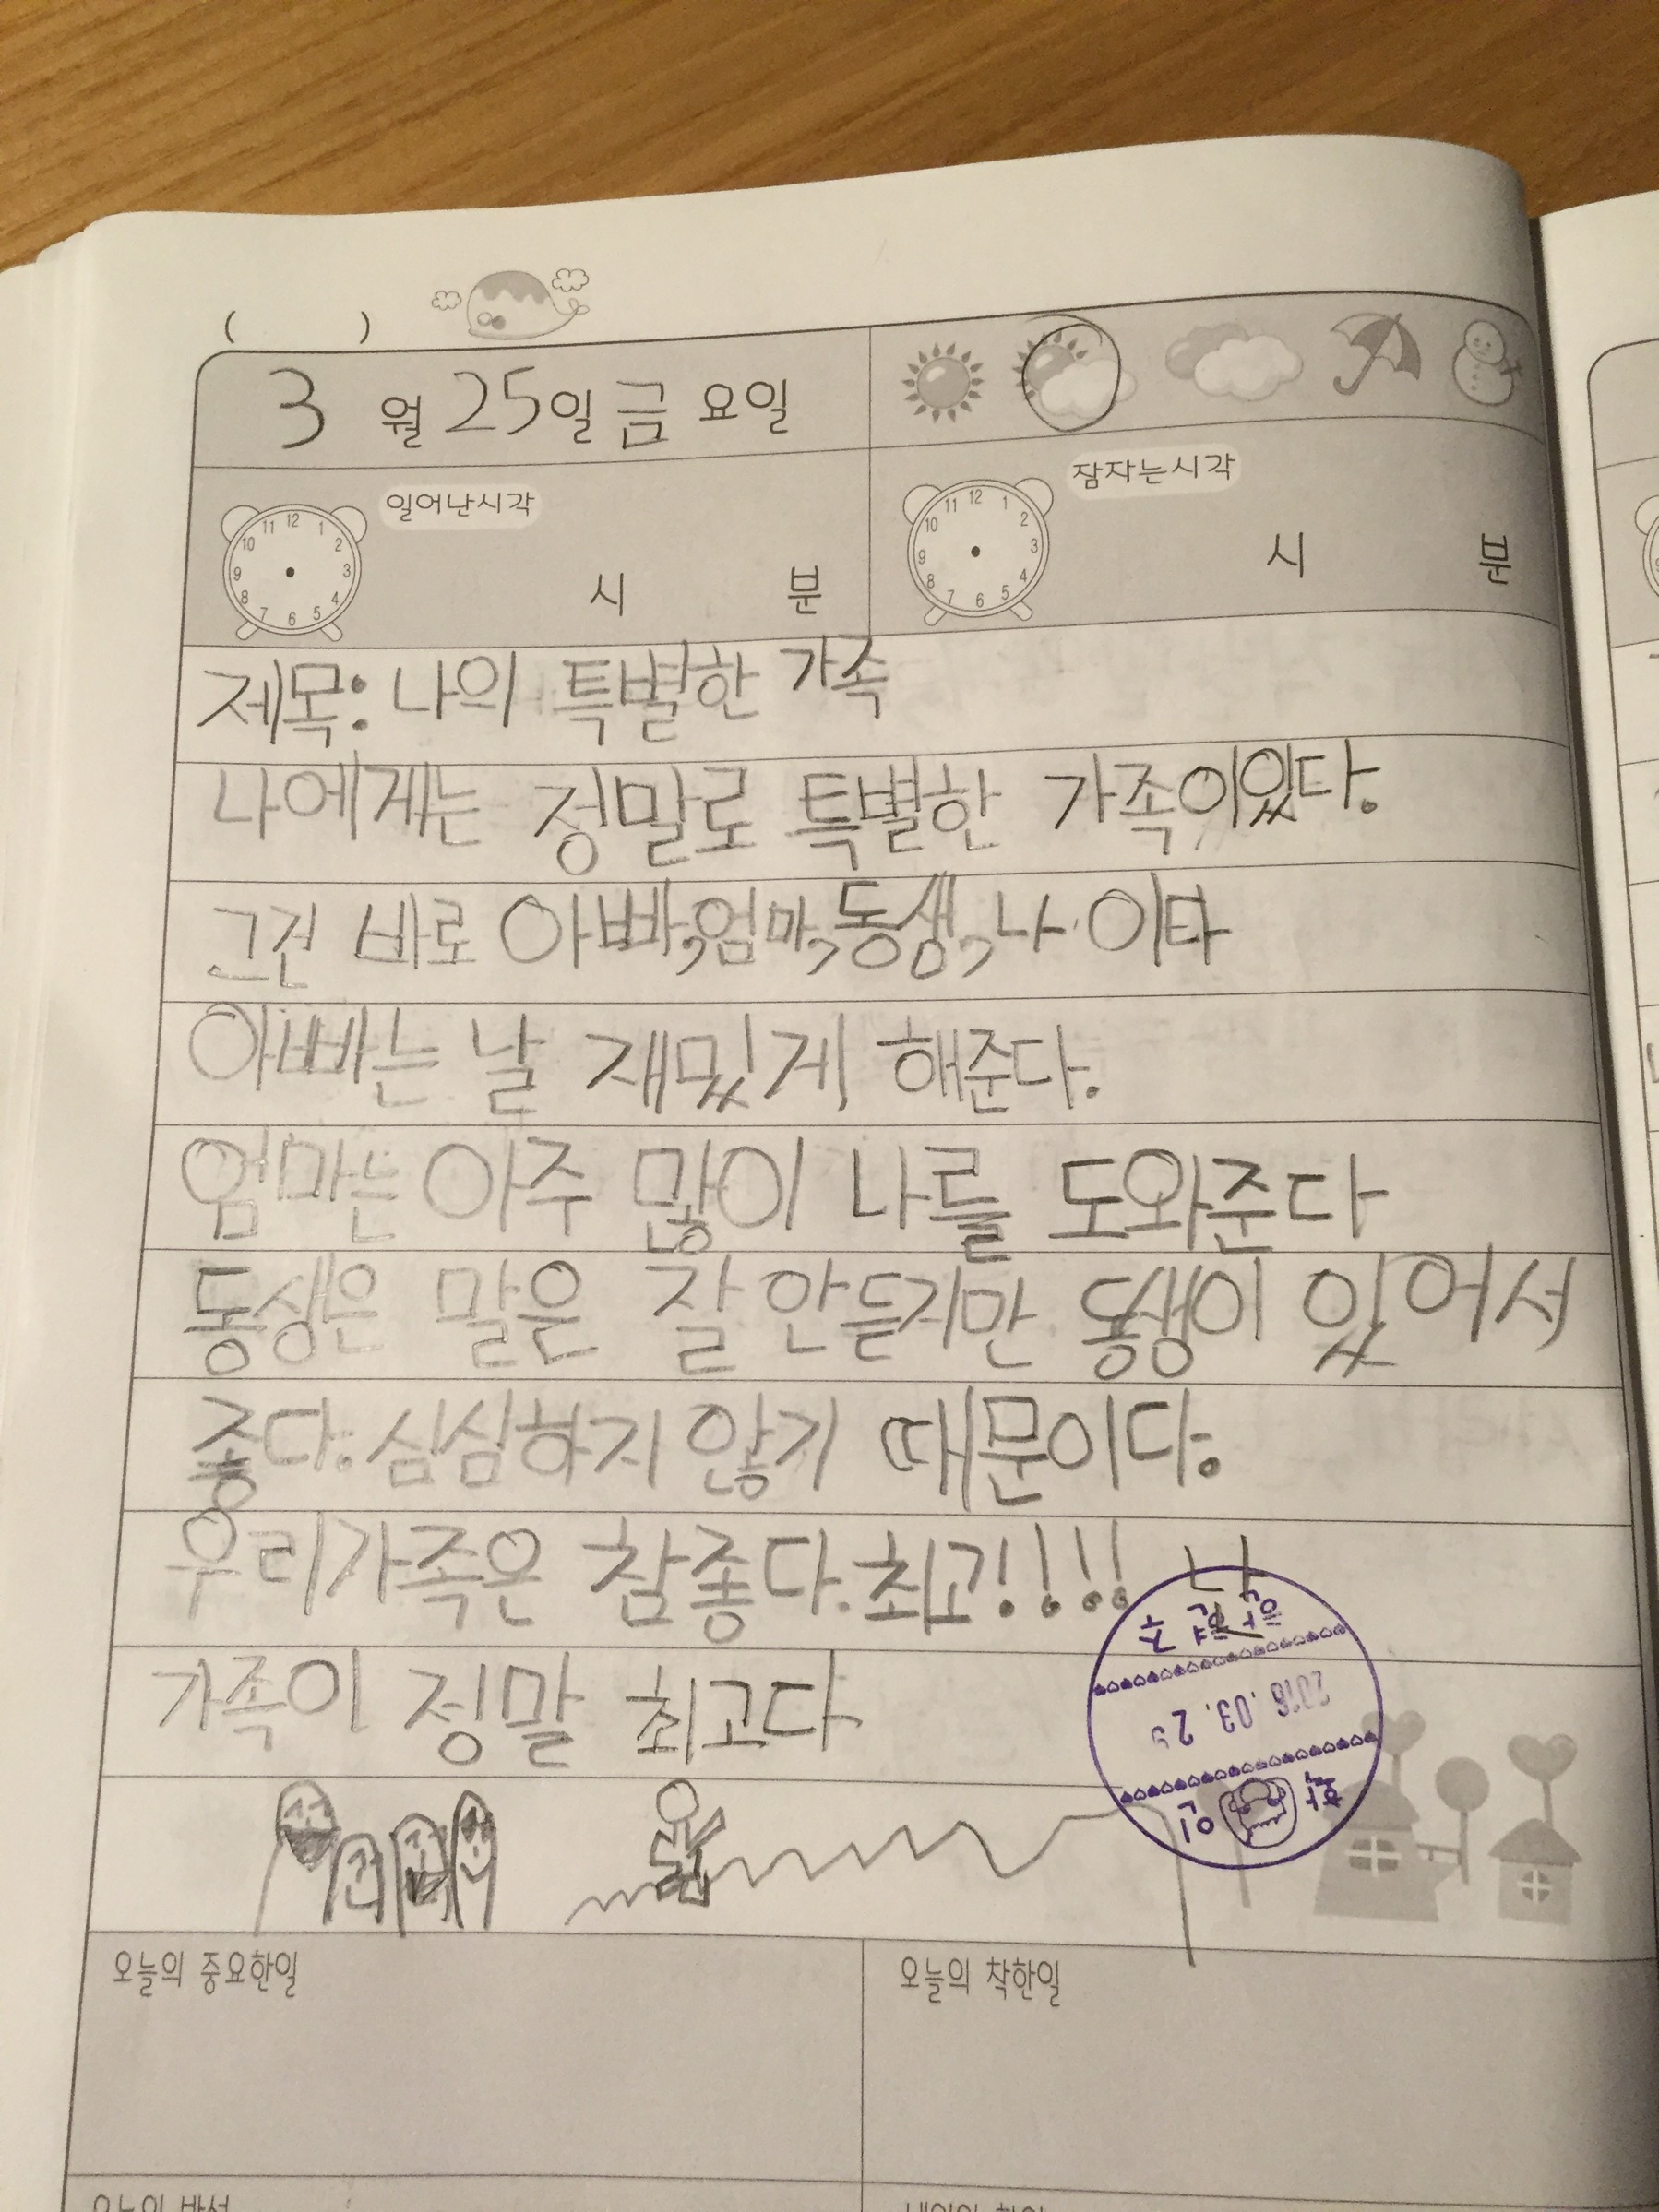 ( )
3 월 25일 금 요일
일어난시각
시 분
잠자는시각
시 분
제목: 나의 특별한 가족
나에게는 정말로 특별한 가족이있다.
그건 바로 아빠,엄마,동생,나 이다
아빠는 날 재밌게 해준다.
엄마는 아주 많이 나를 도와준다
동생은 말은 잘 안듣지만 동생이 있어서
좋다. 심심하지 않기 때문이다.
우리가족은 참좋다. 최고!!!!
가족이 정말 최고다
확인
오늘의 중요한일
오늘의 착한일